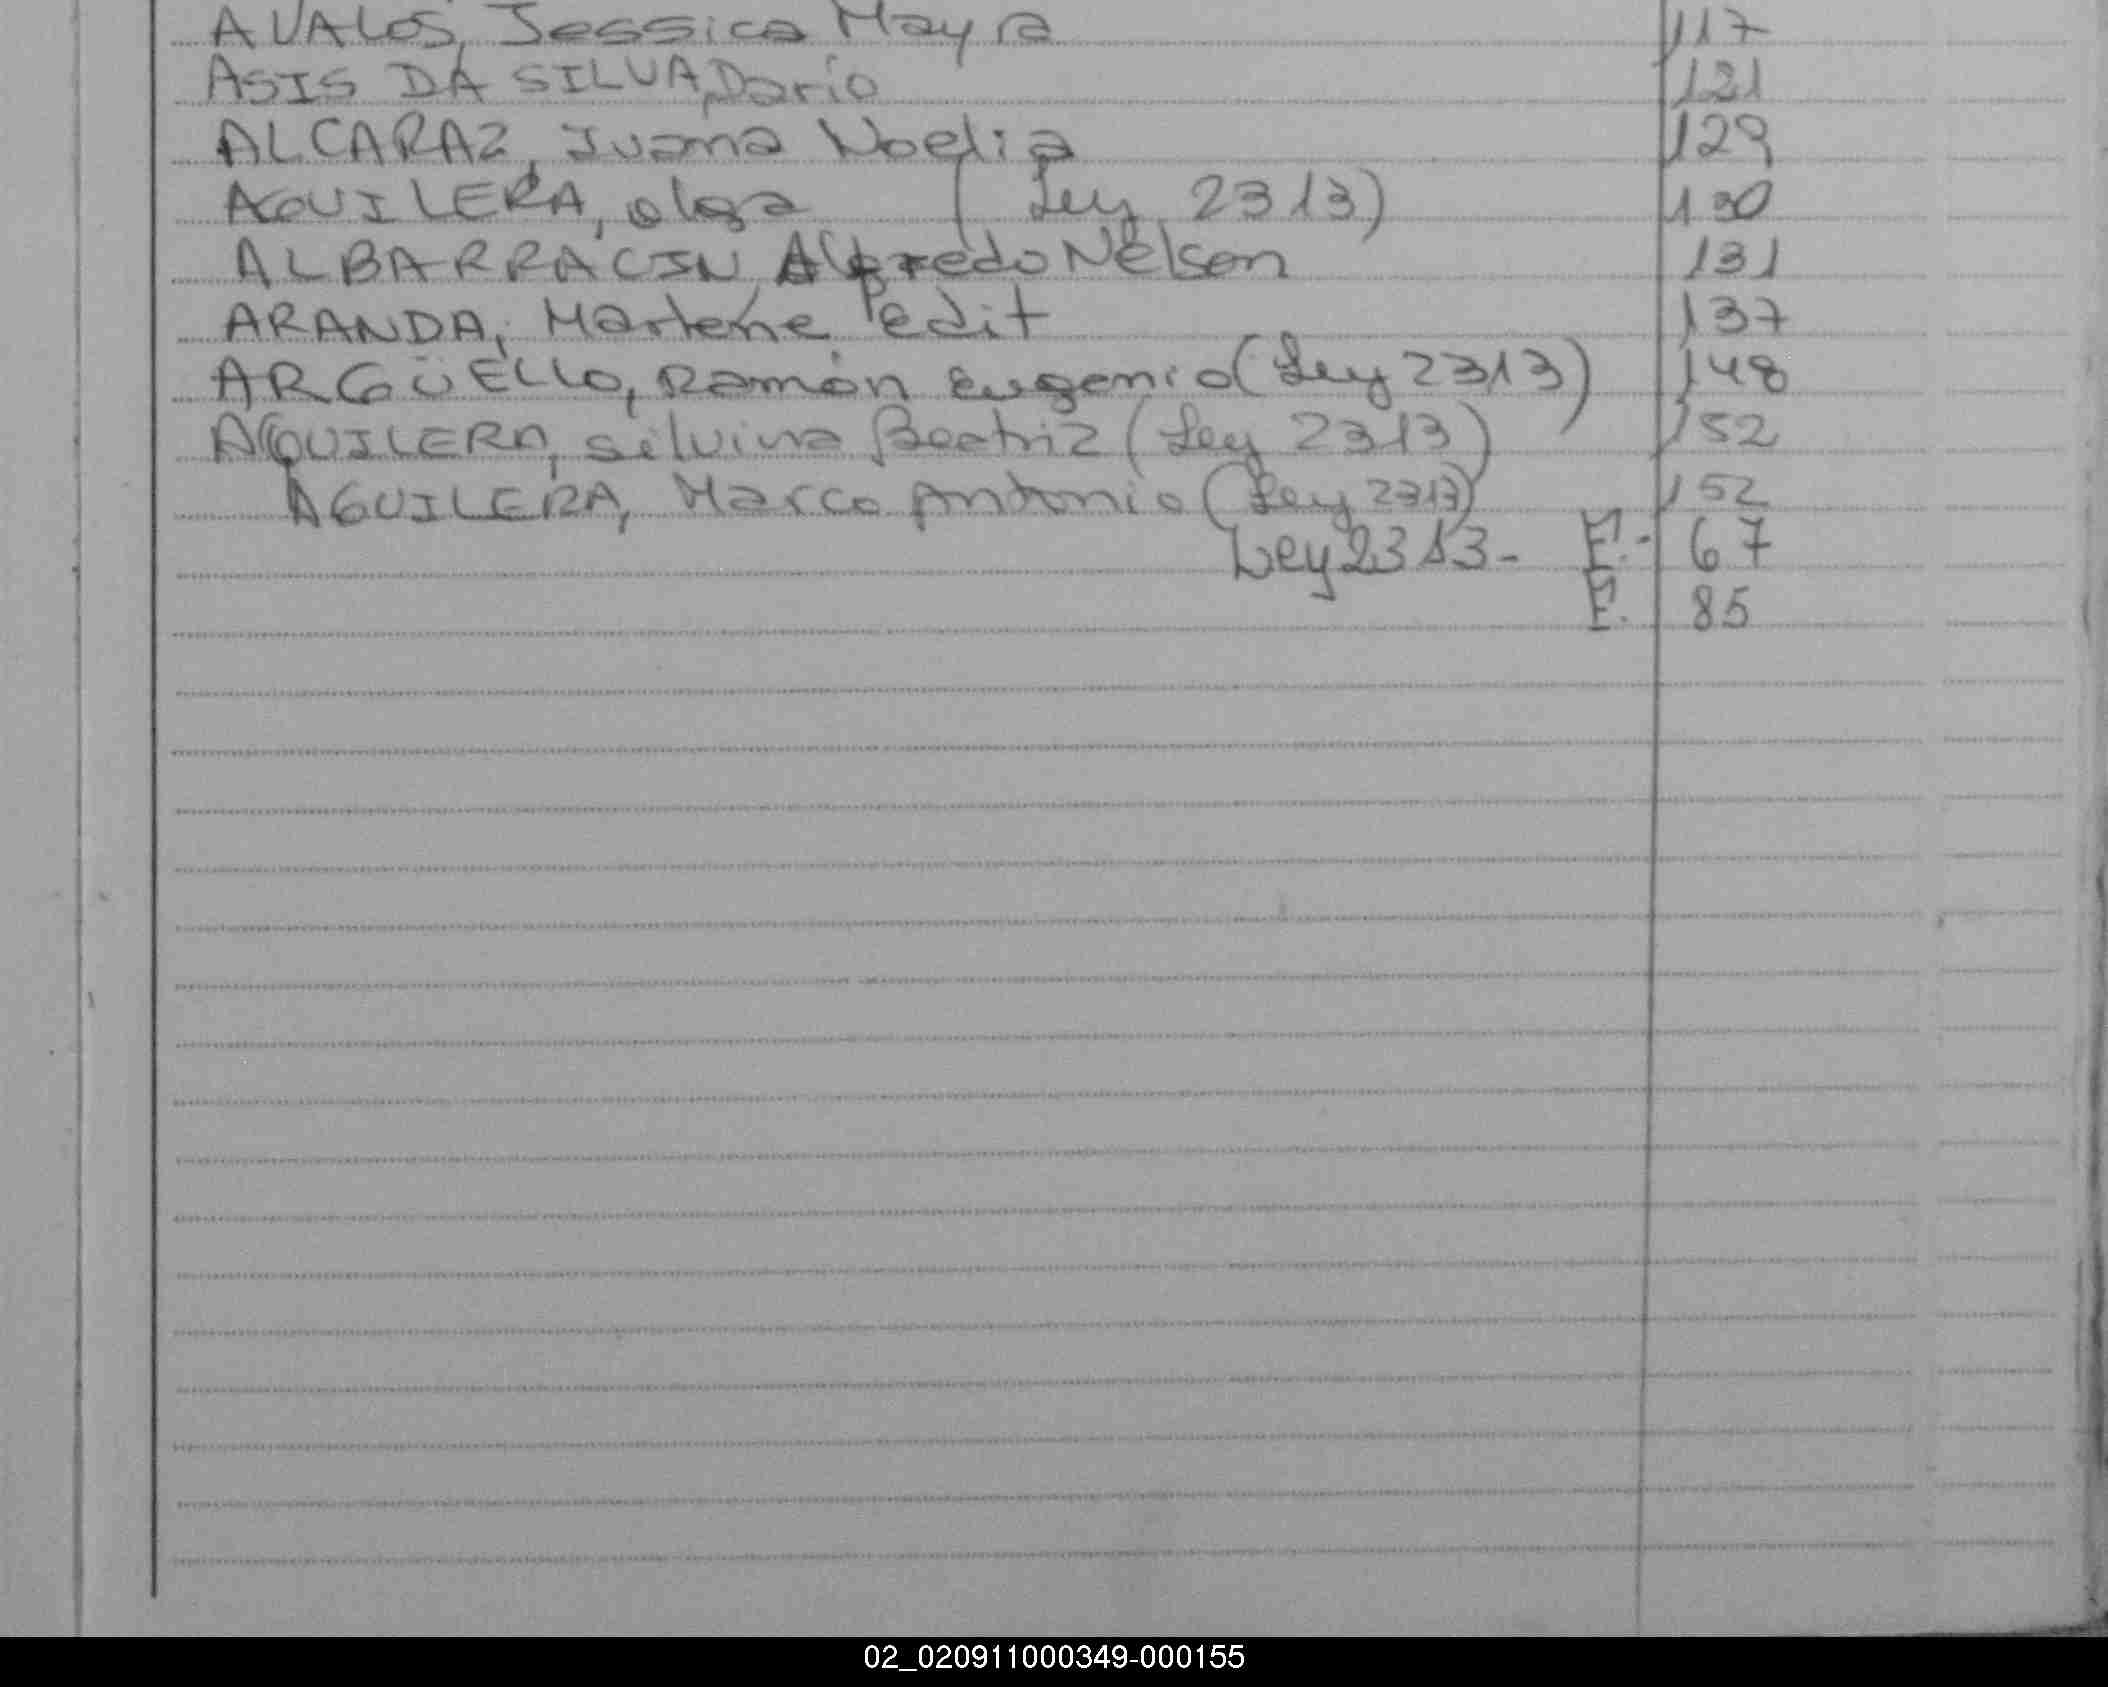 AVALOS, Jessica Mayra 117
ASIS DA SILVA, Darío 121
ALCARAZ, Juana Noelia 129
AGUILERA, olga (Ley 2313) 130
ALBARRACIN, Alfredo Nelson 131
ARANDA, Marlene edit 137
ARGÜELLO, Ramón Eugenio (Ley 2313) 148
AGUILERA, silvina Beatriz (Ley 2313) 152
AGUILERA, Marco Antonio (Ley 2313) 152
Ley 2313- F.- 67
F. 85
02_020911000349-000155